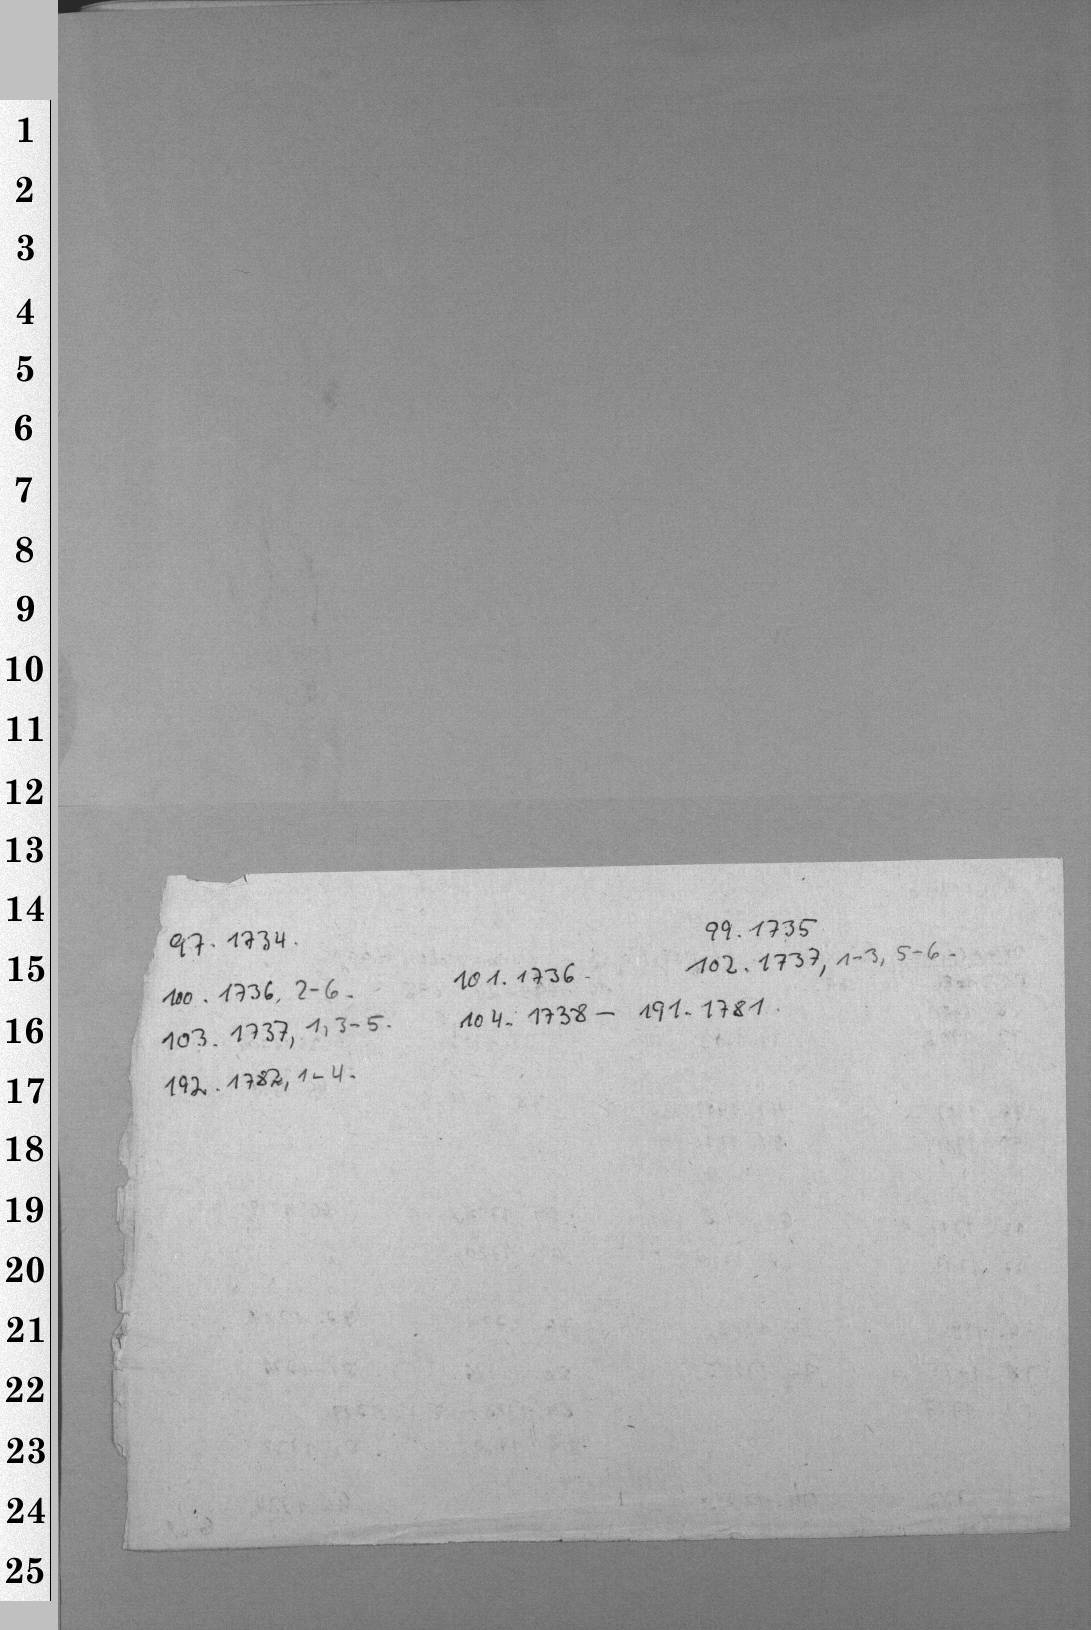 1
2
3
4
5
6
7
8
9
10
11
12
13
14
15
16
17
18
19
20
21
22
23
24
25
97. 1734. 99. 1735
100. 1736, 2-6. 101. 1736. 102. 1737, 1-3, 5-6.
103. 1737, 1, 3-5. 104. 1738 - 191. 1781.
192. 1782, 1-4.